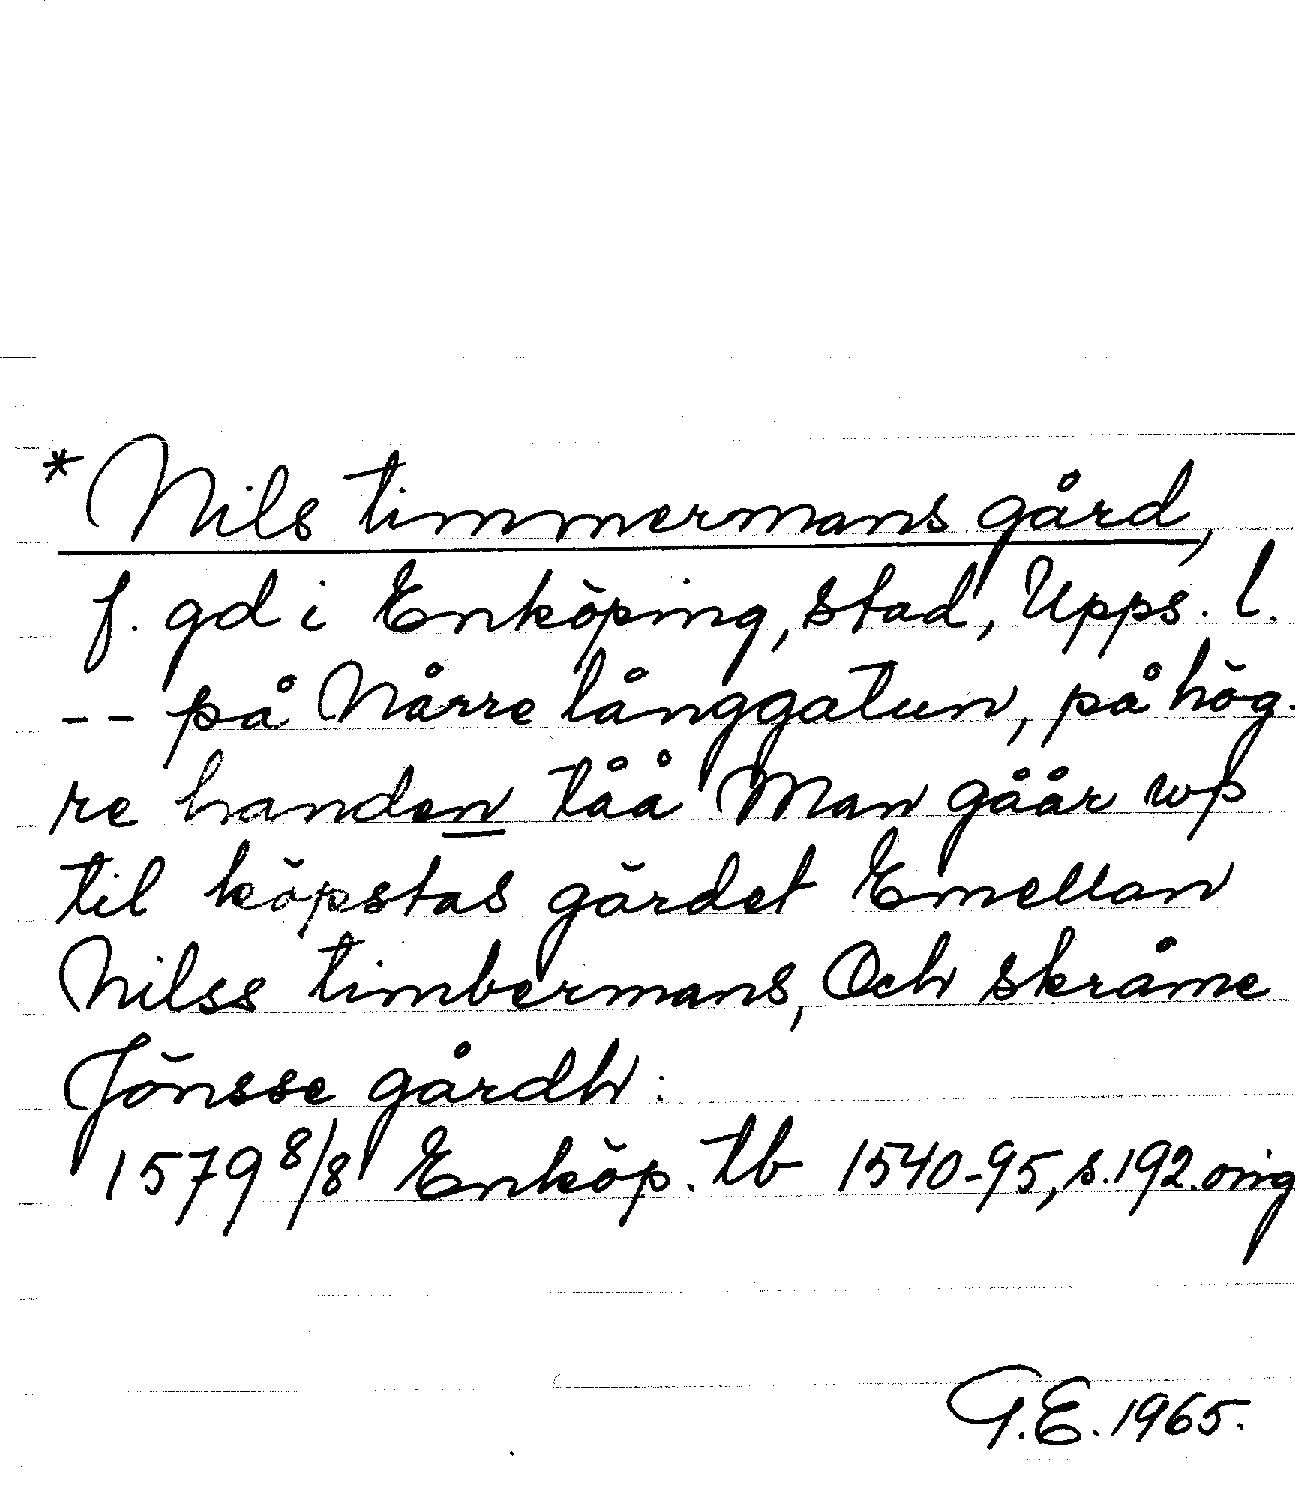 * Nils timmermans gård,
f. gd i Enköping, stad, Upps. l.
-- på Nårre långgatun, på hög-
re handen tåå Man gåår wp
til köpstas gärdet Emellan
Nilss timbermans, Och skråme
Jönsse gårdh:
1579 8/8 Enköp. tb 1540-95, s. 192. orig
G.E. 1965.